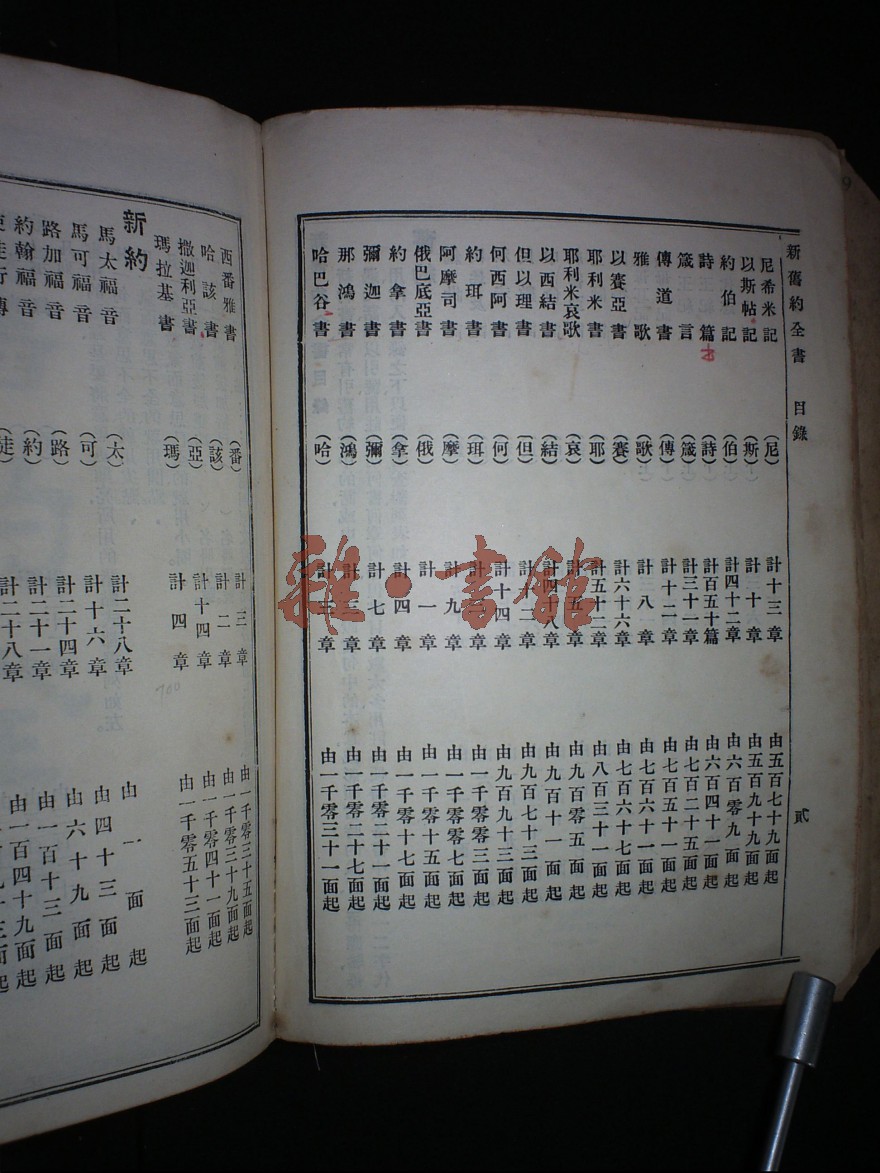 新舊約全書 目錄 貳
尼希米記 (尼) 計十三章 由五百七十九面起
以斯帖記 (斯) 計十章 由五百九十九面起
約伯記 (伯) 計四十二章 由六百零九面起
詩篇 (詩) 計百五十篇 由六百四十一面起
箴言 (箴) 計三十一章 由七百二十五面起
傳道書 (傳) 計十二章 由七百五十一面起
雅歌 (歌) 計八章 由七百六十一面起
以賽亞書 (賽) 計六十六章 由七百六十七面起
耶利米書 (耶) 計五十二章 由八百三十一面起
耶利米哀歌 (哀) 計五章 由九百零五面起
以西結書 (結) 計四十八章 由九百十一面起
但以理書 (但) 計十二章 由九百七十三面起
何西阿書 (何) 計十四章 由九百九十三面起
約珥書 (珥) 計三章 由一千零零三面起
阿摩司書 (摩) 計九章 由一千零零七面起
俄巴底亞書 (俄) 計一章 由一千零十五面起
約拿書 (拿) 計四章 由一千零十七面起
彌迦書 (彌) 計七章 由一千零二十一面起
那鴻書 (鴻) 計三章 由一千零二十七面起
哈巴谷書 (哈) 計三章 由一千零三十一面起
西番雅書 (番) 計三章 由一千零三十五面起
哈該書 (該) 計二章 由一千零三十九面起
撒迦利亞書 (亞) 計十四章 由一千零四十一面起
瑪拉基書 (瑪) 計四章 由一千零五十三面起
新約
馬太福音 (太) 計二十八章 由一面起
馬可福音 (可) 計十六章 由四十三面起
路加福音 (路) 計二十四章 由六十九面起
約翰福音 (約) 計二十一章 由一百十三面起
使徒行傳 (徒) 計二十八章 由一百四十九面起
雜·書館